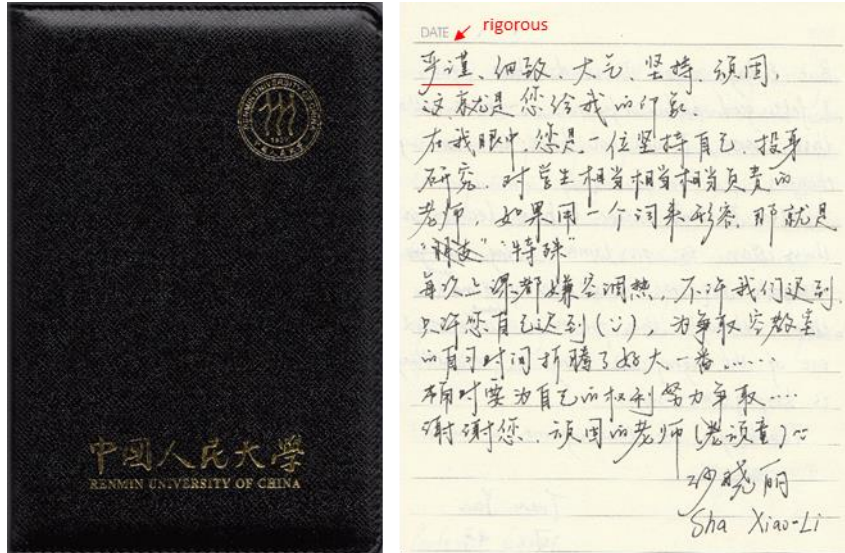 RENMIN UNIVERSITY OF CHINA
1937
中國人民大學
RENMIN UNIVERSITY OF CHINA
DATE
rigorous
严谨、细致、大气、坚持、顽固,
这就是您给我的印象.
在我眼中,您是一位坚持自己,投身
研究,对学生相当相当相当负责的
老师,如果用一个词来形容,那就是
"特殊"
每次上课都嫌空调热,不许我们迟到,
只许您自己迟到(ॱ),为争取空教室
的自习时间折腾了好大一番……
随时要为自己的权利努力争取……
谢谢您、顽固的老师(老顽童)~
沙晓丽
Sha Xiao-Li